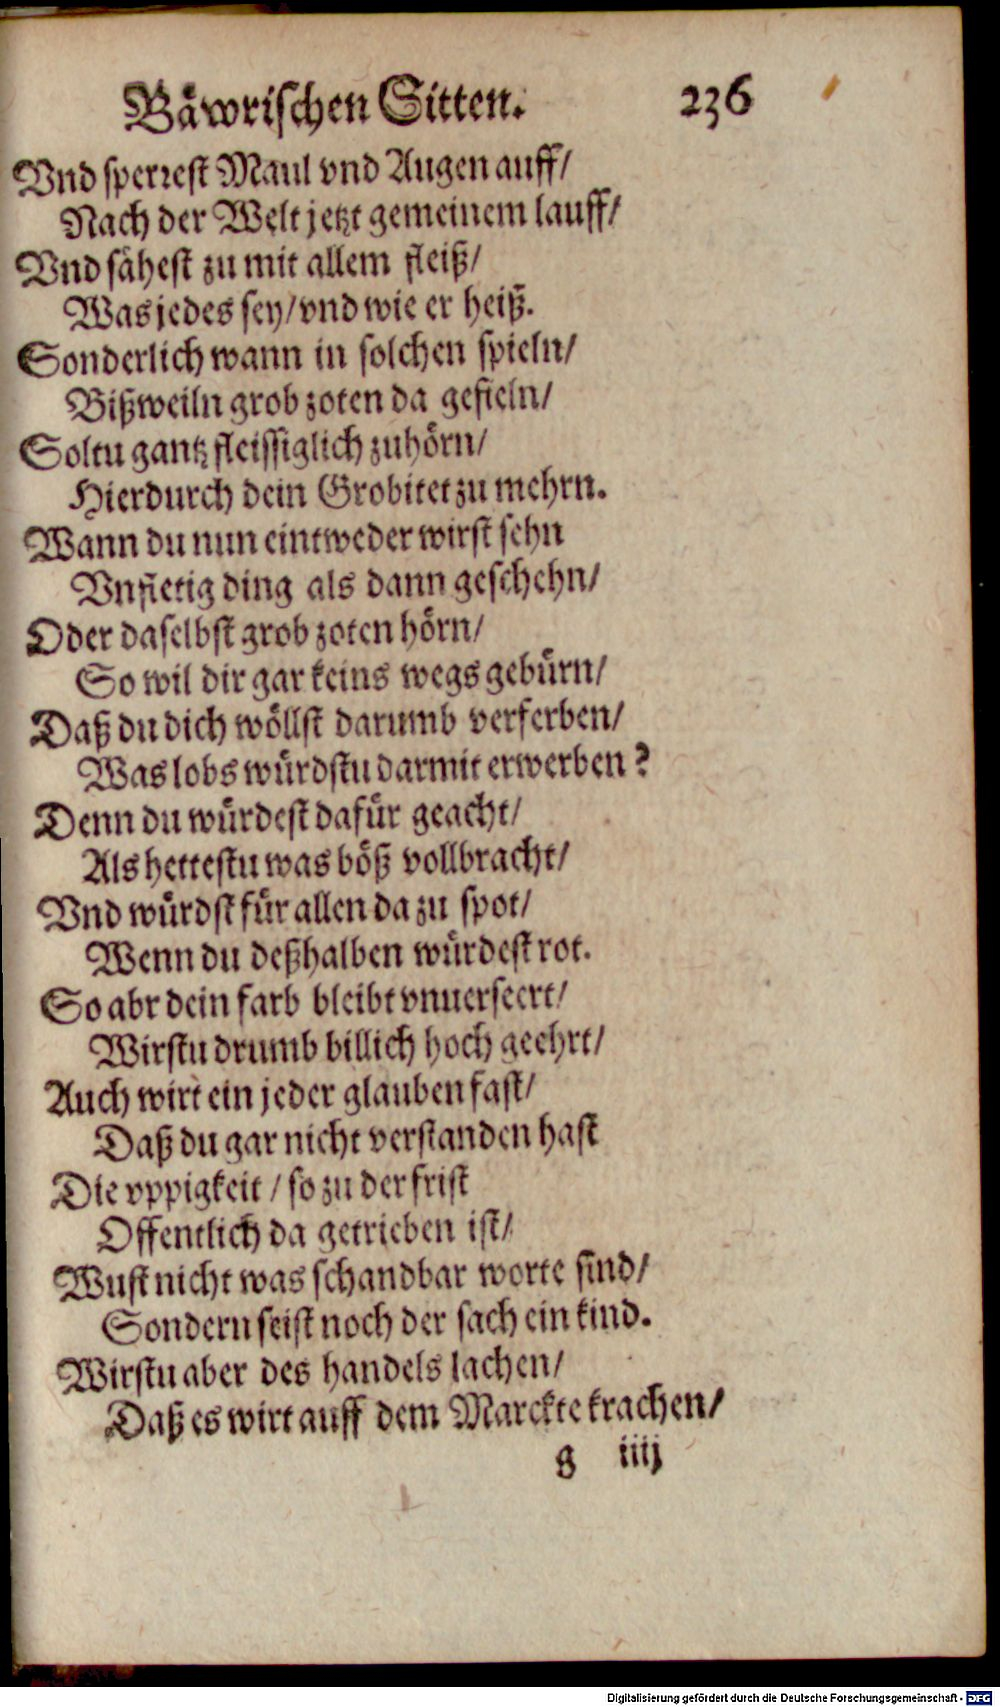 Bäwrischen Sitten. 236
Vnd sperrest Maul vnd Augen auff/
Nach der Welt jetzt gemeinem lauff/
Vnd sähest zu mit allem fleiß/
Was jedes sey/ vnd wie er heiß.
Sonderlich wann in solchen spieln/
Bißweiln grob zoten da gefieln/
Soltu gantz fleissiglich zuhörn/
Hierdurch dein Grobitet zu mehrn.
Wann du nun eintweder wirst sehn
Vnfletig ding als dann geschehn/
Oder daselbst grob zoten hörn/
So wil dir gar keins wegs gebürn/
Daß du dich wöllst darumb verferben/
Was lobs würdstu darmit erwerben?
Denn du würdest dafür geacht/
Als hettestu was böß vollbracht/
Vnd würdst für allen da zu spot/
Wenn du deßhalben würdest rot.
So abr dein farb bleibt vnuerseert/
Wirstu drumb billich hoch geehrt/
Auch wirt ein jeder glauben fast/
Daß du gar nicht verstanden hast
Die vppigkeit / so zu der frist
Offentlich da getrieben ist/
Wust nicht was schandbar worte sind/
Sondern seist noch der sach ein kind.
Wirstu aber des handels lachen/
Daß es wirt auff dem Marckte krachen/
g iiij
Digitalisierung gefördert durch die Deutsche Forschungsgemeinschaft - DFG